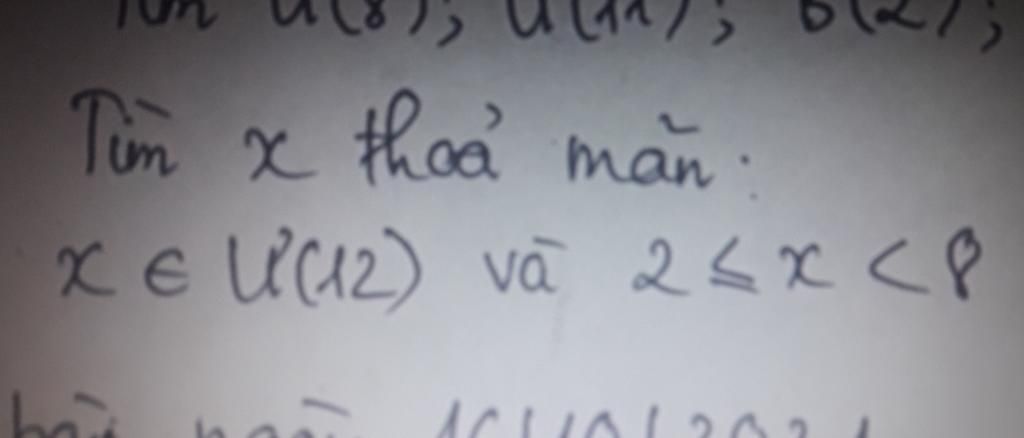 Tìm Ư(8); Ư(11); B(2);
Tìm x thoả mãn:
x ∈ Ư(12) và 2 ≤ x < 8